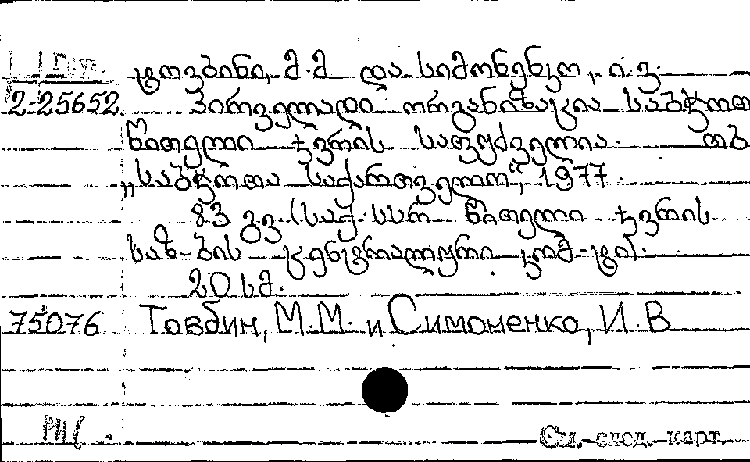 ტოვბინი, მ.მ და სიმონენკო, ი.ვ.
2-25652 პირველადი ორგანიზაცია საბჭოთა
წითელი ჯვრის საფუძველია. თბ
„საბჭოთა საქართველო“, 1977.
83 გვ. (საქ. სსრ წითელი ჯვრის
საზ-ბის ცენტრალური კომ-ტი).
20 სმ.
75076 Товбин, М.М. и Симоненко, И.В
См. свод. карт.